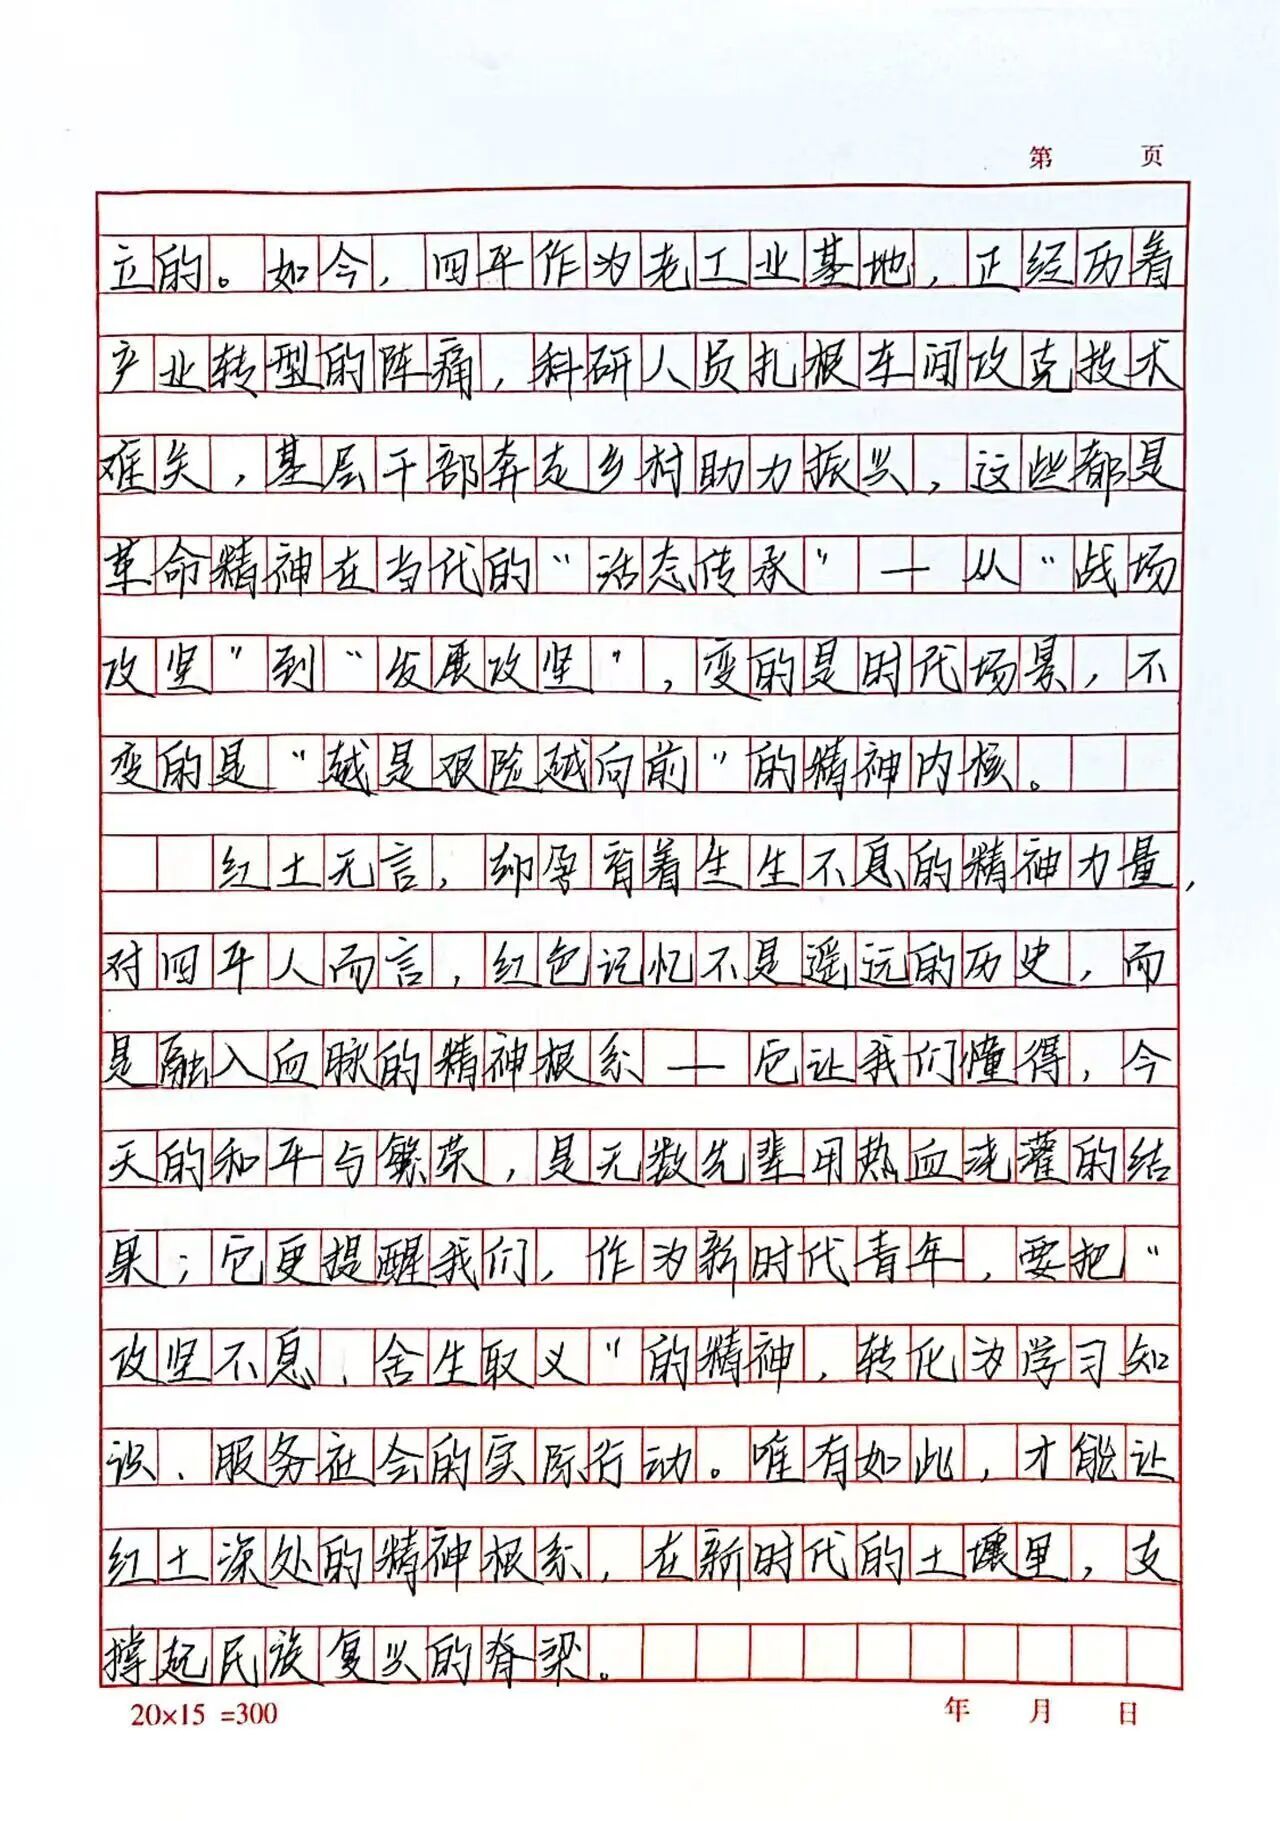 第 页
立的。如今，四平作为老工业基地，正经历着
产业转型的阵痛，科研人员扎根车间攻克技术
难关，基层干部奔走乡村助力振兴，这些都是
革命精神在当代的“活态传承”—从“战场
攻坚”到“发展攻坚”，变的是时代场景，不
变的是“越是艰险越向前”的精神内核。
红土无言，却孕育着生生不息的精神力量，
对四平人而言，红色记忆不是遥远的历史，而
是融入血脉的精神根系—它让我们懂得，今
天的和平与繁荣，是无数先辈用热血浇灌的结
果；它更提醒我们，作为新时代青年，要把“
攻坚不息、舍生取义”的精神，转化为学习知
识、服务社会的实际行动。唯有如此，才能让
红土深处的精神根系，在新时代的土壤里，支
撑起民族复兴的脊梁。
20×15=300 年 月 日